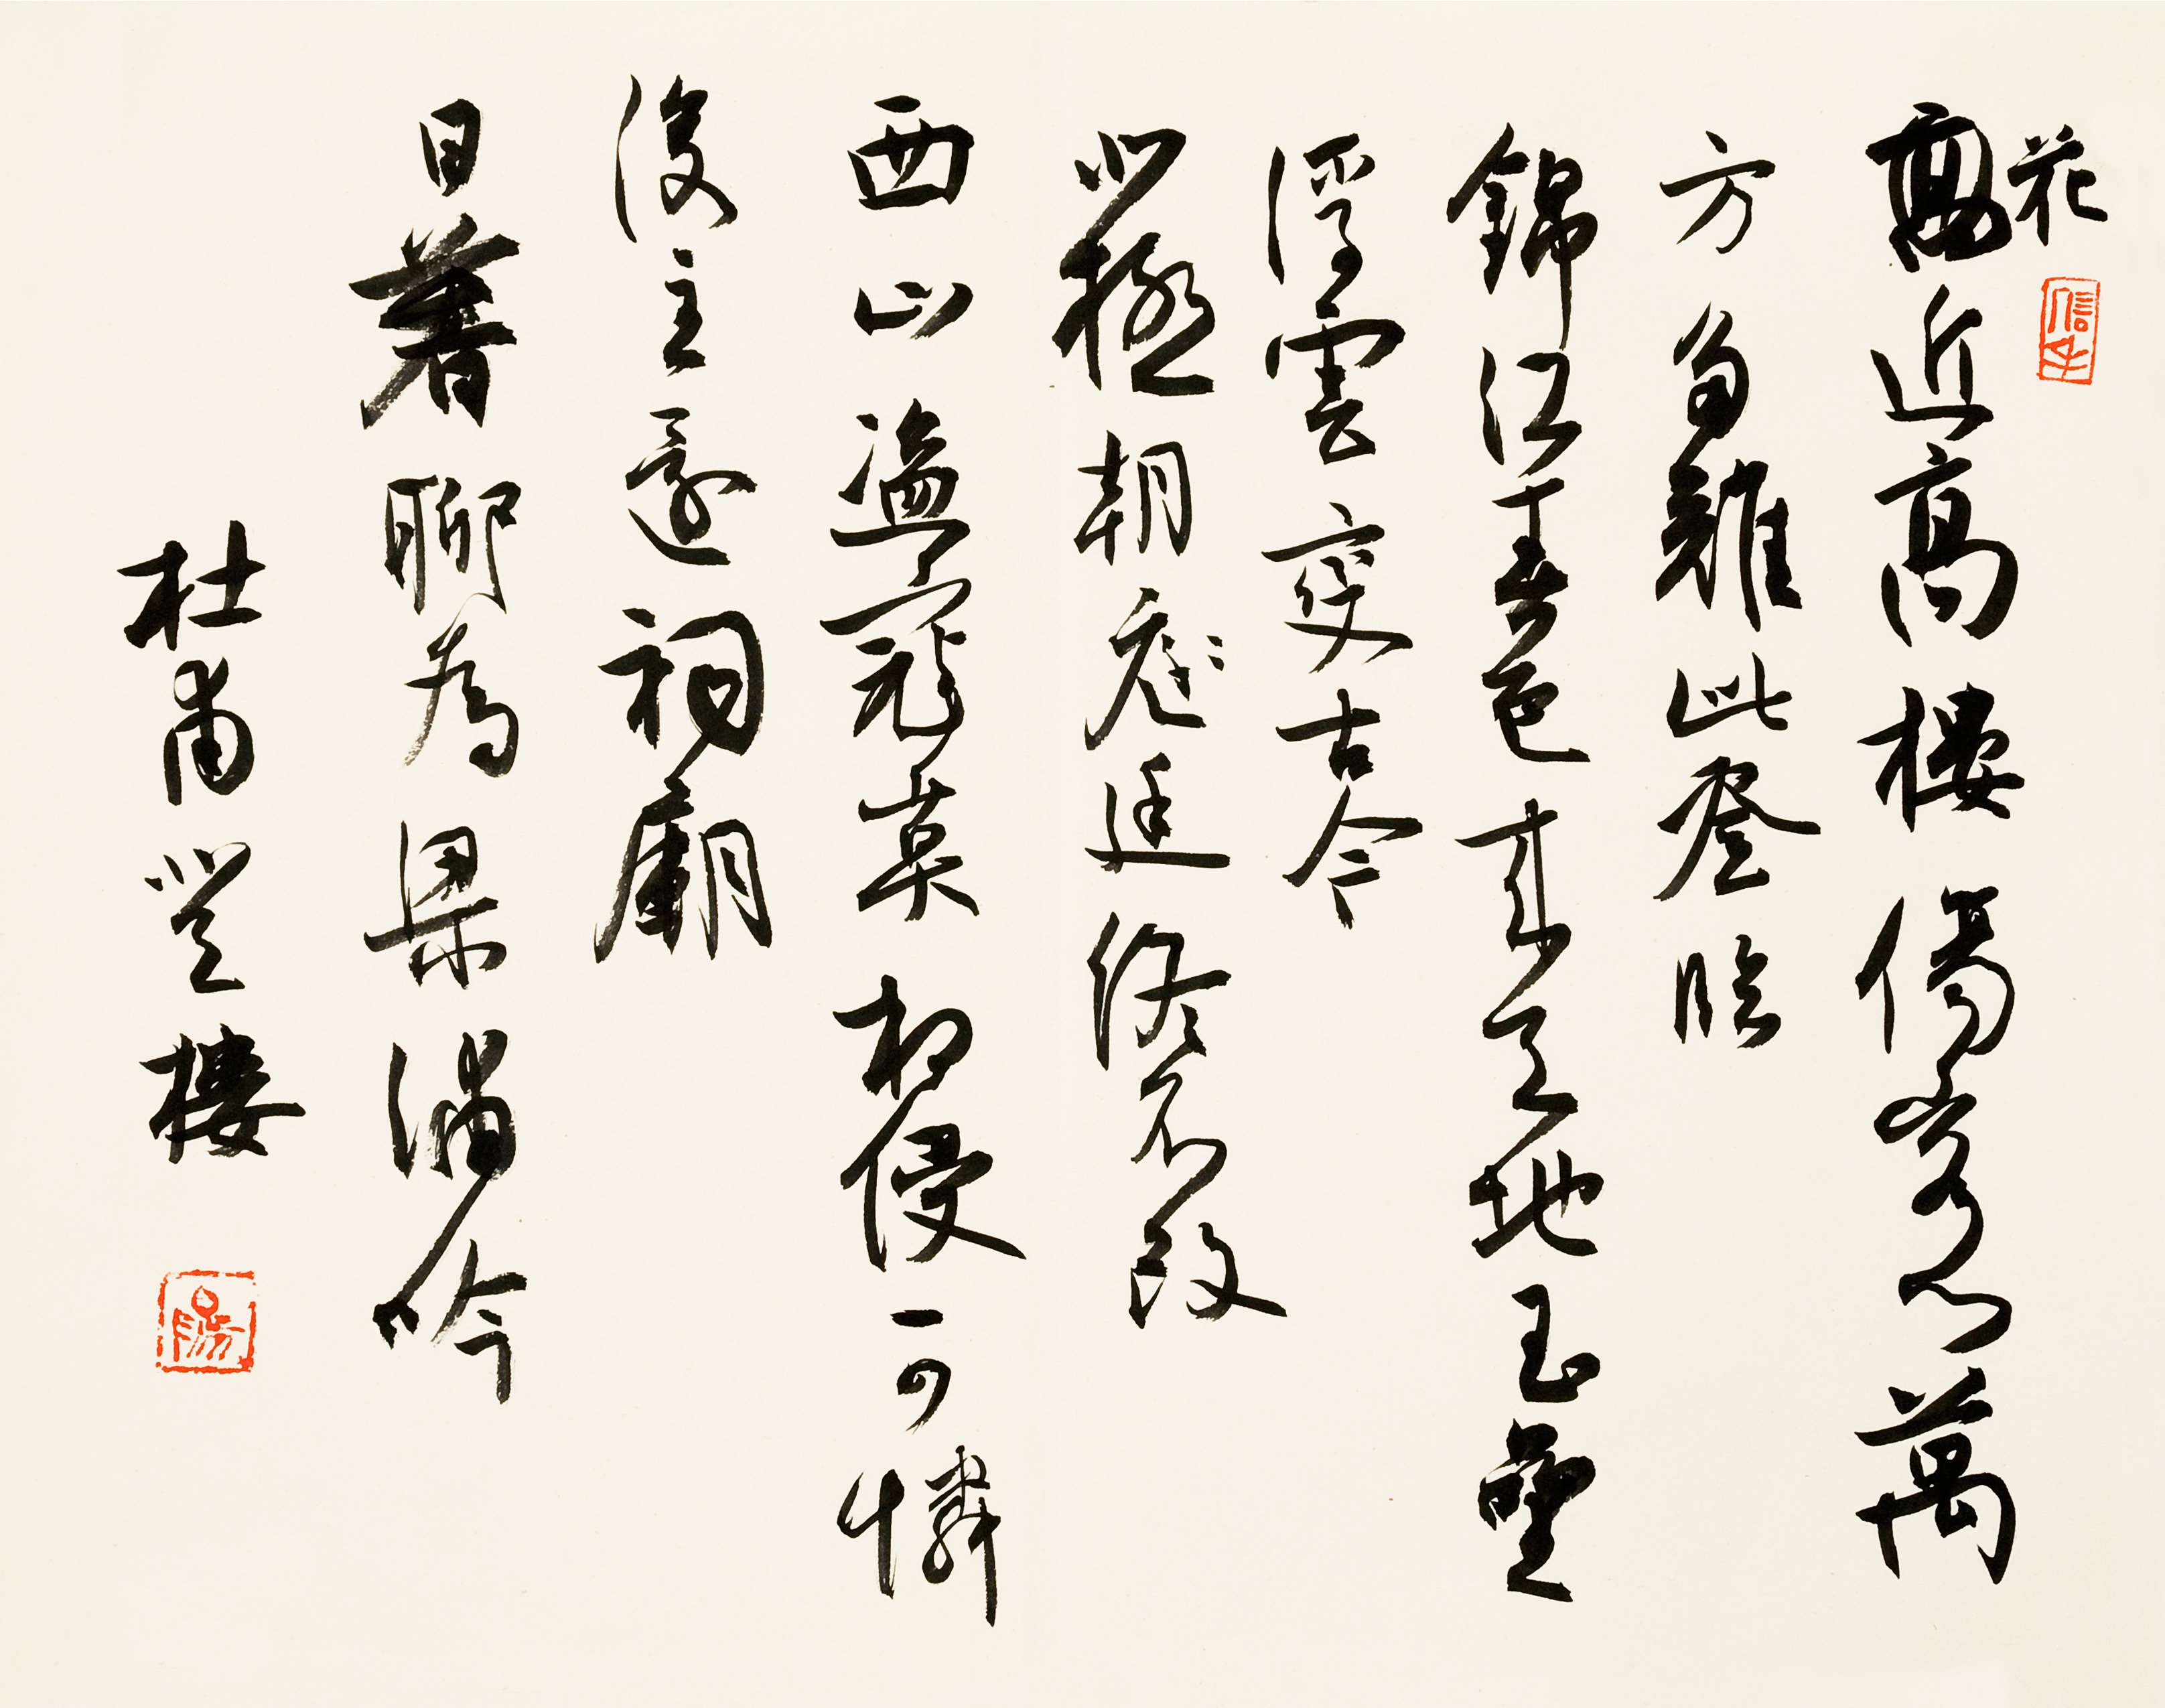 花
信手
近高樓傷客心萬
方多難此登臨
錦江春色來天地玉壘
浮雲變古今
北極朝庭廷終不改
西山盜寇莫相侵可憐
後主還祠廟
日暮聊為梁吟
杜甫登樓